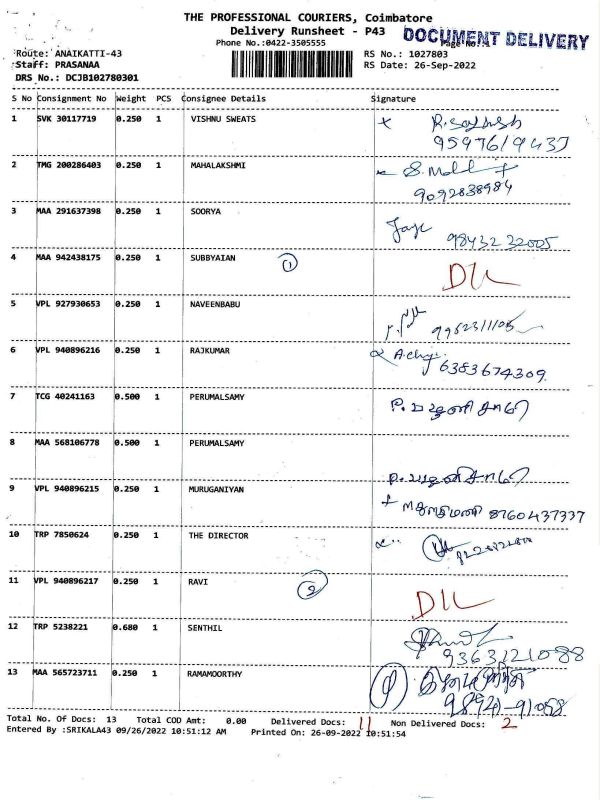 THE PROFESSIONAL COURIERS, Coimbatore
Delivery Runsheet - P43
DOCUMENT DELIVERY
Phone No.:0422-3505555
Route: ANAIKATTI-43
RS No.: 1027803
Staff: PRASANAA
RS Date: 26-Sep-2022
DRS No.: DCJB102780301
S No Consignment No Weight PCS Consignee Details Signature
1 SVK 30117719 0.250 1 VISHNU SWEATS
2 TMG 200286403 0.250 1 MAHALAKSHMI
9092838984
3 MAA 291637398 0.250 1 SOORYA
98432 32005
4 MAA 942438175 0.250 1 SUBBYAIAN ① DIL
5 VPL 927930653 0.250 1 NAVEENBABU
6 VPL 940896216 0.250 1 RAJKUMAR
6383674309
7 TCG 40241163 0.500 1 PERUMALSAMY
P. பழனிசாமி
8 MAA 568106778 0.500 1 PERUMALSAMY
P. பழனிசாமி
9 VPL 940896215 0.250 1 MURUGANIYAN
8760437337
10 TRP 7850624 0.250 1 THE DIRECTOR
11 VPL 940896217 0.250 1 RAVI ② DIL
12 TRP 5238221 0.680 1 SENTHIL
9363121088
13 MAA 565723711 0.250 1 RAMAMOORTHY
Total No. Of Docs: 13 Total COD Amt: 0.00 Delivered Docs: 11 Non Delivered Docs: 2
Entered By :SRIKALA43 09/26/2022 10:51:12 AM Printed On: 26-09-2022 10:51:54